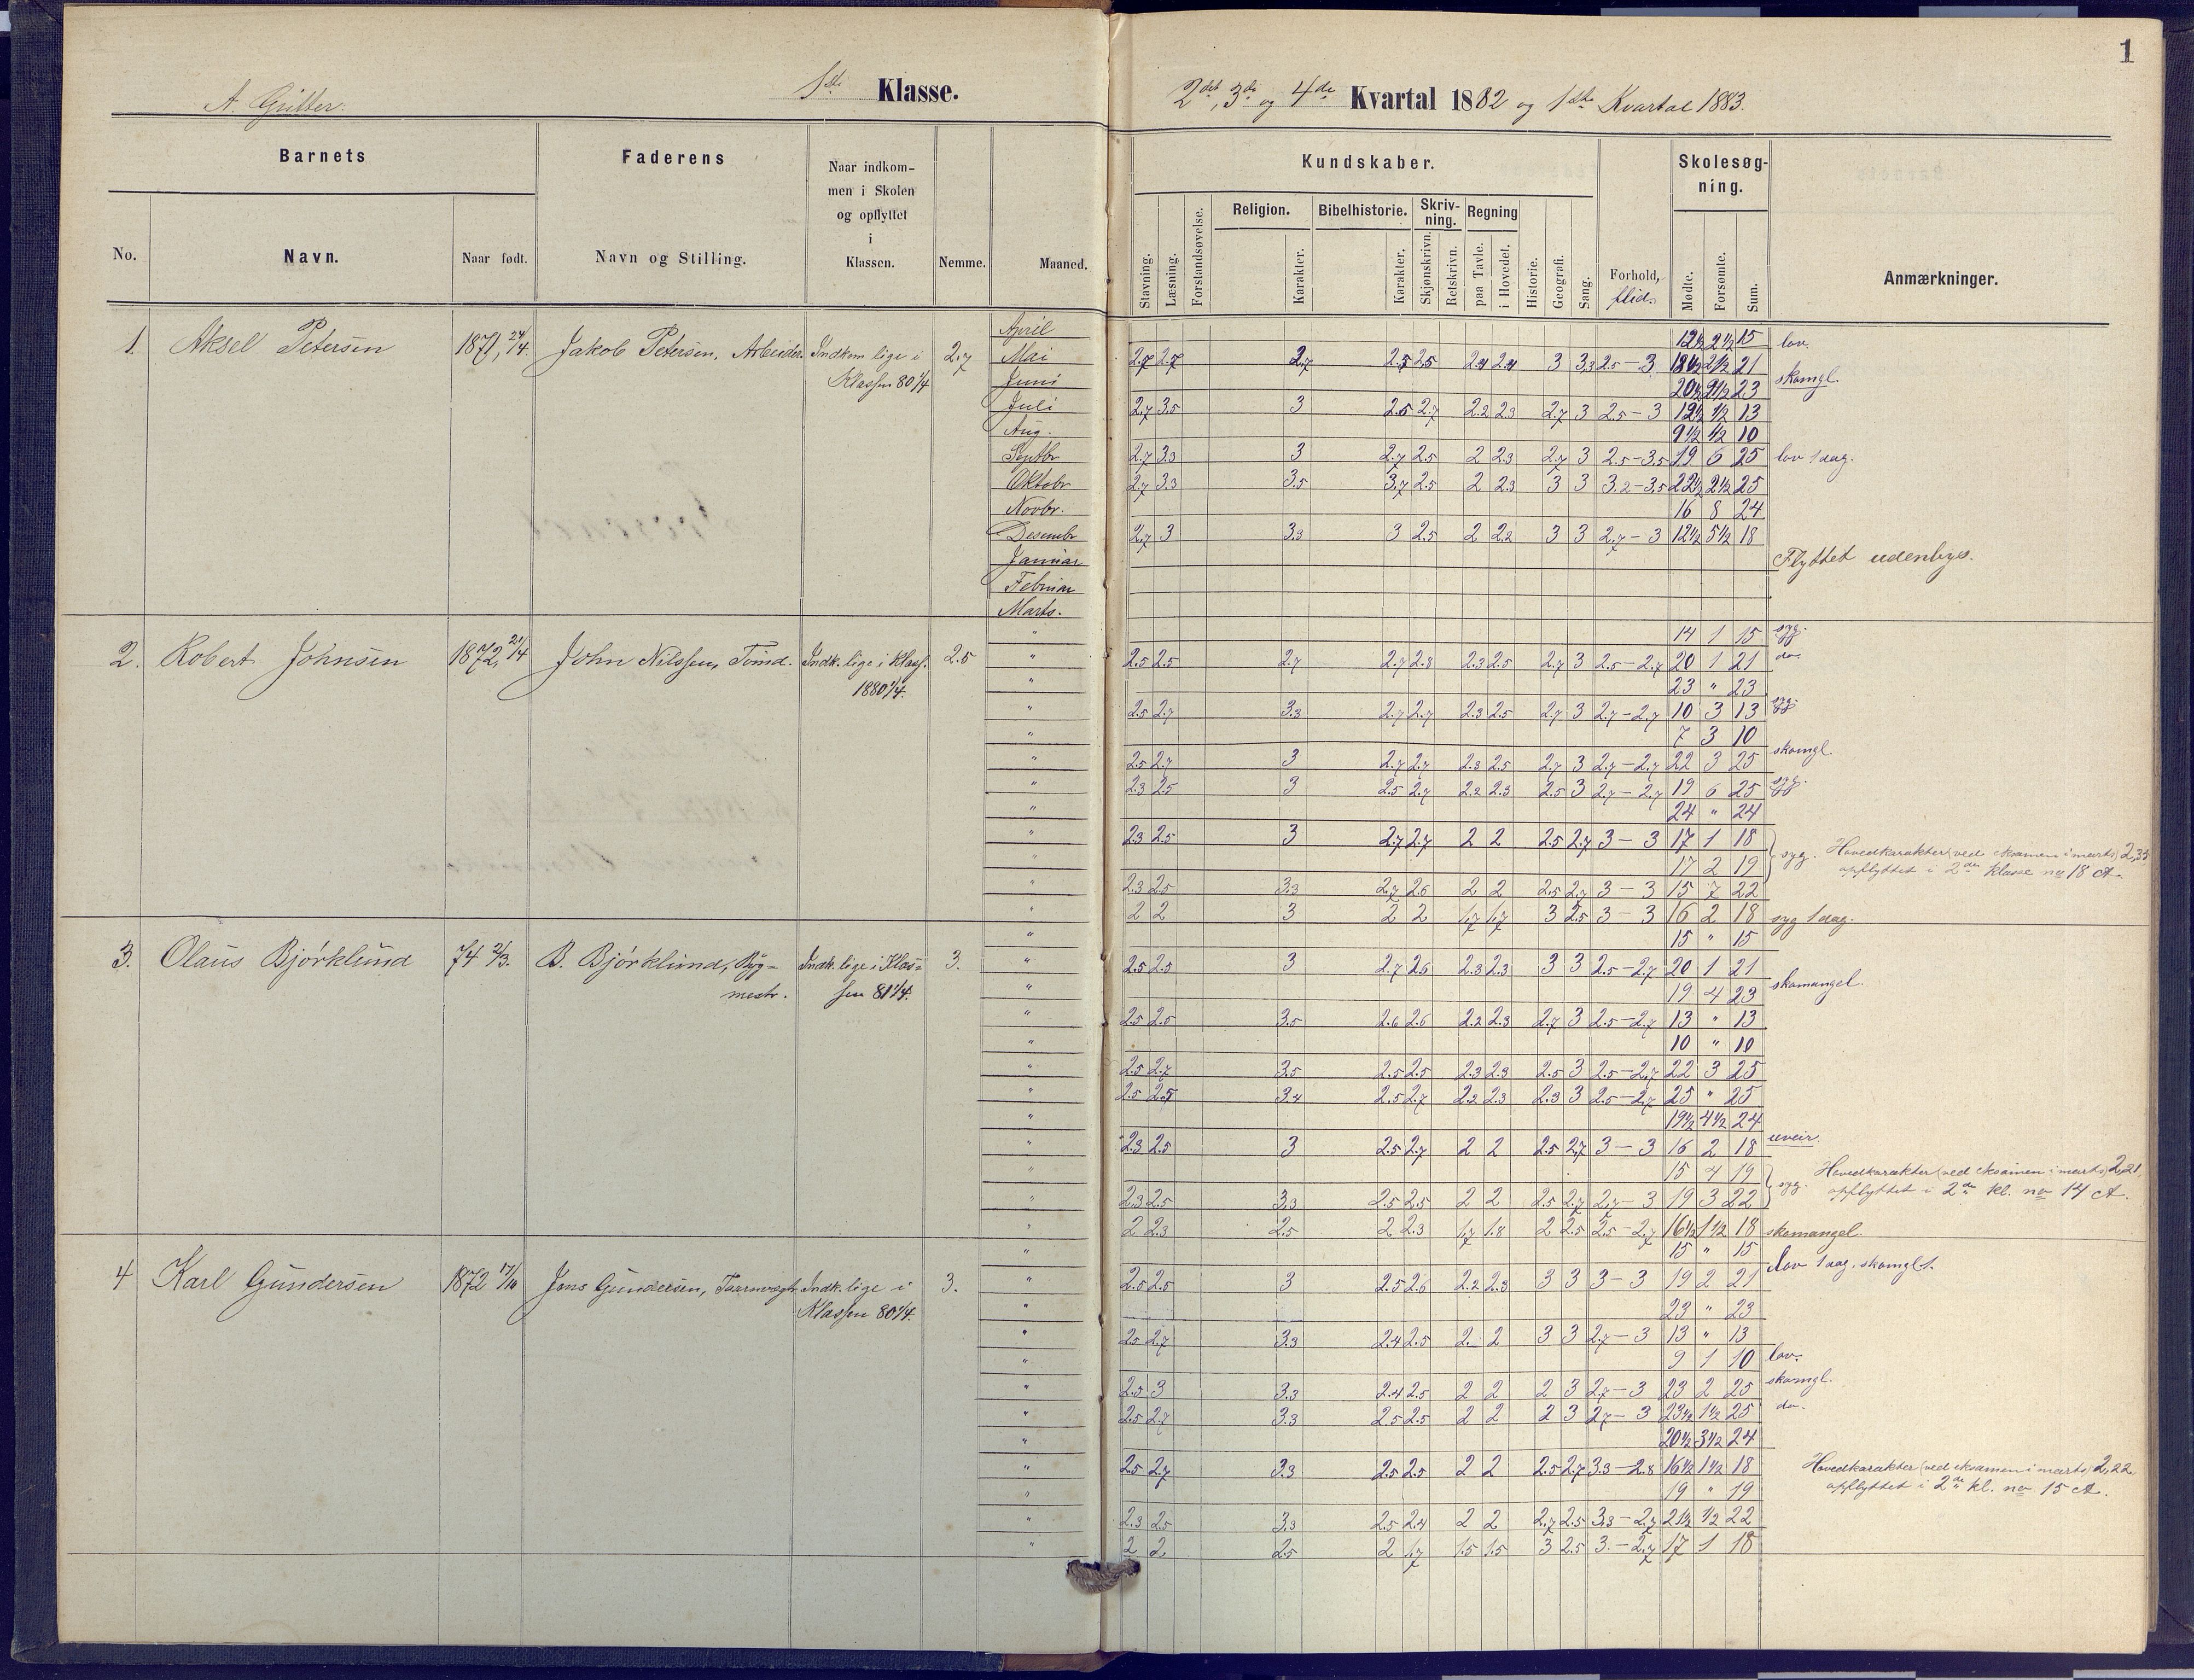 1
A. Gutter.
1ste Klasse.
2det, 3de og 4de Kvartal 1882 og 1ste Kvartal 1883.
Barnets
Faderens
Naar indkom-
men i Skolen
og opflyttet
i
Klassen.
No.
Navn.
Naar født.
Navn og Stilling.
Nemme.
Maaned.
Kundskaber.
Skolesøg-
ning.
Religion. Bibelhistorie. Skriv-
ning. Regning
Stavning. Læsning. Forstandsøvelse. Karakter. Karakter. Skjønskrivn. Retskrivn. paa Tavle. i Hovedet. Historie. Geografi. Sang. Forhold, flid. Mødte. Forsømte. Sum. Anmærkninger.
1. Aksel Petersen 1871, 24/4. Jakob Petersen, Arbeider. Indkom lige i Klassen 80 1/4 2.7
April 12½ 2½ 15 lov.
Mai 2.7 2.7 2.7 2.5 2.5 2.4 2.4 3 3.3 2.5-3 18½ 2½ 21
Juni 20½ 2½ 23 skomgl.
Juli 2.7 3.5 3 2.5 2.7 2.2 2.3 2.7 3 2.5-3 12½ ½ 13
Aug. 9½ ½ 10
Septbr 2.7 3.3 3 2.7 2.5 2 2.3 2.7 3 2.5-3.5 19 6 25 lov 1 dag.
Oktobr 2.7 3.3 3.5 3.7 2.5 2 2.3 3 3 3.2-3.5 22½ 2½ 25
Novbr. 16 8 24
Desembr 2.7 3 3.3 3 2.5 2 2.2 3 3 2.7-3 12½ 5½ 18
Januar Flyttet udenbyes.
Februar
Marts.
2. Robert Johnsen 1872, 21/4 John Nilssen, Tømd. Indk. lige i Klass. 1880 1/4. 2.5
" 14 1 15 syg.
" 2.5 2.5 2.7 2.7 2.8 2.3 2.5 2.7 3 2.5-2.7 20 1 21 do.
" 23 " 23
" 2.5 2.7 3.3 2.7 2.7 2.3 2.5 2.7 3 2.7-2.7 10 3 13 syg.
" 7 3 10
" 2.5 2.7 3 2.7 2.7 2.3 2.5 2.7 3 2.7-2.7 22 3 25 skomgl.
" 2.3 2.5 3 2.5 2.7 2.2 2.3 2.5 3 2.7-2.7 19 6 25 syg.
" 24 " 24
" 2.3 2.5 3 2.7 2.7 2 2 2.5 2.7 3-3 17 1 18
" 17 2 19 syg. Hovedkarakter (ved eksamen i marts) 2,35
opflyttet i 2de klasse no 18 A.
" 2.3 2.5 3.3 2.7 2.6 2 2 2.5 2.7 3-3 15 7 22
" 2 2 3 2 2 1.7 1.7 3 2.5 3-3 16 2 18 syg 1 dag.
3. Olaus Bjørklund 74 2/3. B. Bjørklund, Byg-
mestr. Indk. lige i Klas-
sen 81 1/4. 3.
" 15 " 15
" 2.5 2.5 3 2.7 2.6 2.3 2.3 3 3 2.5-2.7 20 1 21
" 19 4 23 skomangel.
" 2.5 2.5 3.5 2.6 2.6 2.2 2.3 2.7 3 2.5-2.7 13 " 13
" 10 " 10
" 2.5 2.7 3.5 2.5 2.5 2.3 2.3 2.5 3 2.5-2.7 22 3 25
" 2.5 2.5 3.4 2.5 2.7 2.2 2.3 2.3 3 2.5-2.7 25 " 25
" 19½ 4½ 24
" 2.3 2.5 3 2.5 2.7 2 2 2.5 2.7 3-3 16 2 18 uveir.
" 15 4 19 syg. Hovedkarakter (ved eksamen i marts) 2,21,
opflyttet i 2de kl. no 14 A.
" 2.3 2.5 3.3 2.5 2.5 2 2 2.5 2.7 2.7-3 19 3 22
" 2 2.3 2.5 2 2.3 1.7 1.8 2 2.5 2.5-2.7 16½ 1½ 18 skomangel.
4 Karl Gundersen 1872 17/10 Jens Gundersen, Taarnvægt. Indk. lige i
Klassen 80 1/4. 3.
" 15 " 15
" 2.5 2.5 3 2.5 2.6 2.2 2.3 3 3 3-3 19 2 21 lov 1 dag, skomgl 1.
" 23 " 23
" 2.5 2.7 3.3 2.4 2.5 2 2 3 3 2.7-3 13 " 13
" 9 1 10 lov.
" 2.5 3 3.3 2.4 2.5 2 2 2 3 2.7-3 23 2 25 skomgl.
" 2.5 2.7 3.3 2.5 2.5 2 2 2 3 2.7-3 23½ 1½ 25 do.
" 20½ 3½ 24
" 2.5 2.7 3.3 2.5 2.5 2 2 2.5 2.7 3.3-2.8 16½ 1½ 18
" 19 " 19 Hovedkarakter (ved eksamen i marts) 2,22,
opflyttet i 2de kl. no 15 A.
" 2.3 2.5 3.3 2.5 2.4 2 2 2.7 2.5 3.3-2.7 21½ ½ 22
" 2 2. 2.5 2 1.7 1.5 1.5 3 2.5 3.-2.7 17 1 18